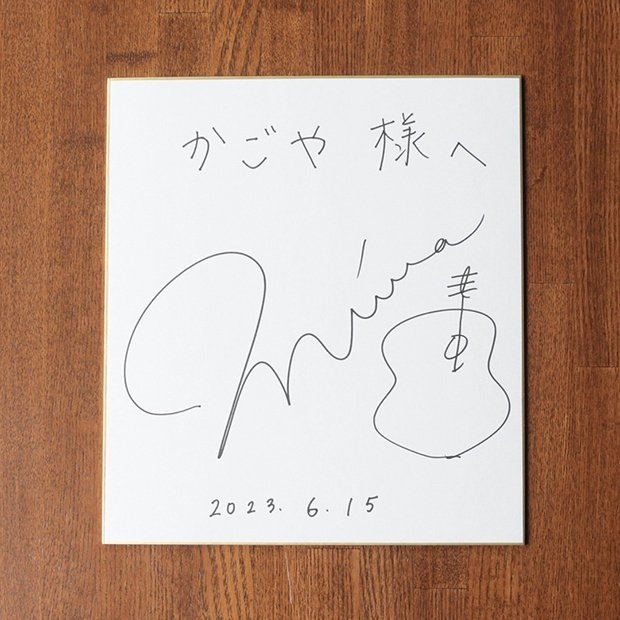 かごや 様へ
Miwa
2023. 6. 15